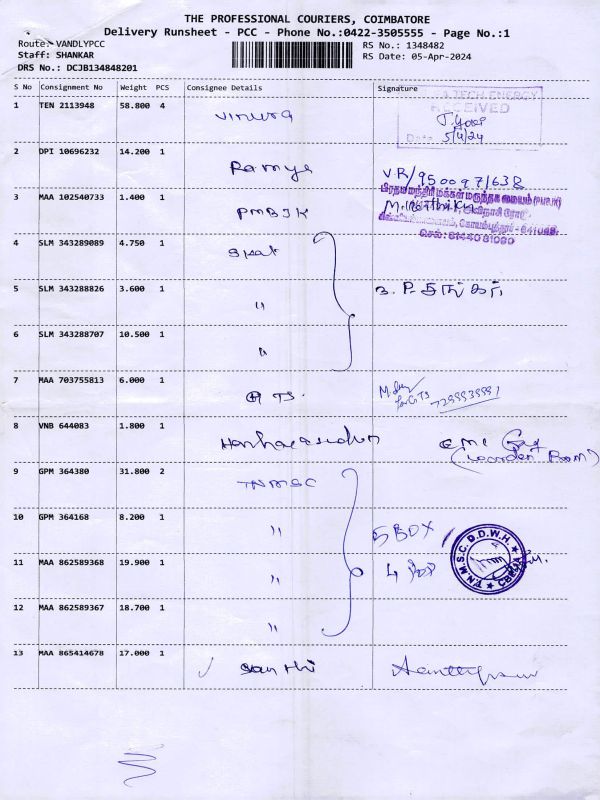 THE PROFESSIONAL COURIERS, COIMBATORE
Delivery Runsheet - PCC - Phone No.:0422-3505555 - Page No.:1
Route: VANDLYPCC
RS No.: 1348482
Staff: SHANKAR
RS Date: 05-Apr-2024
DRS No.: DCJB134848201
S No Consignment No Weight PCS Consignee Details Signature
1 TEN 2113948 58.800 4
TECH ENERGY
RECEIVED
Date 5/4/24
2 DPI 10696232 14.200 1 Ramya
VR/9500971638
3 MAA 102540733 1.400 1 PMBJK
பிரதம மந்திரி மக்கள் மருந்தக மையம்
கோயம்புத்தூர் - 641048.
செல்: 81440 81090
4 SLM 343289089 4.750 1 Skat
5 SLM 343288826 3.600 1 "
6 SLM 343288707 10.500 1 "
7 MAA 703755813 6.000 1 TS.
7299939991
8 VNB 644083 1.800 1 Hariharasudhan
(Warden Room)
9 GPM 364380 31.800 2 TNMSC
10 GPM 364168 8.200 1 "
5 BOX
11 MAA 862589368 19.900 1 "
T.N.M.S.C. D.D.W.H. CBE
12 MAA 862589367 18.700 1 "
13 MAA 865414678 17.000 1 Santhi